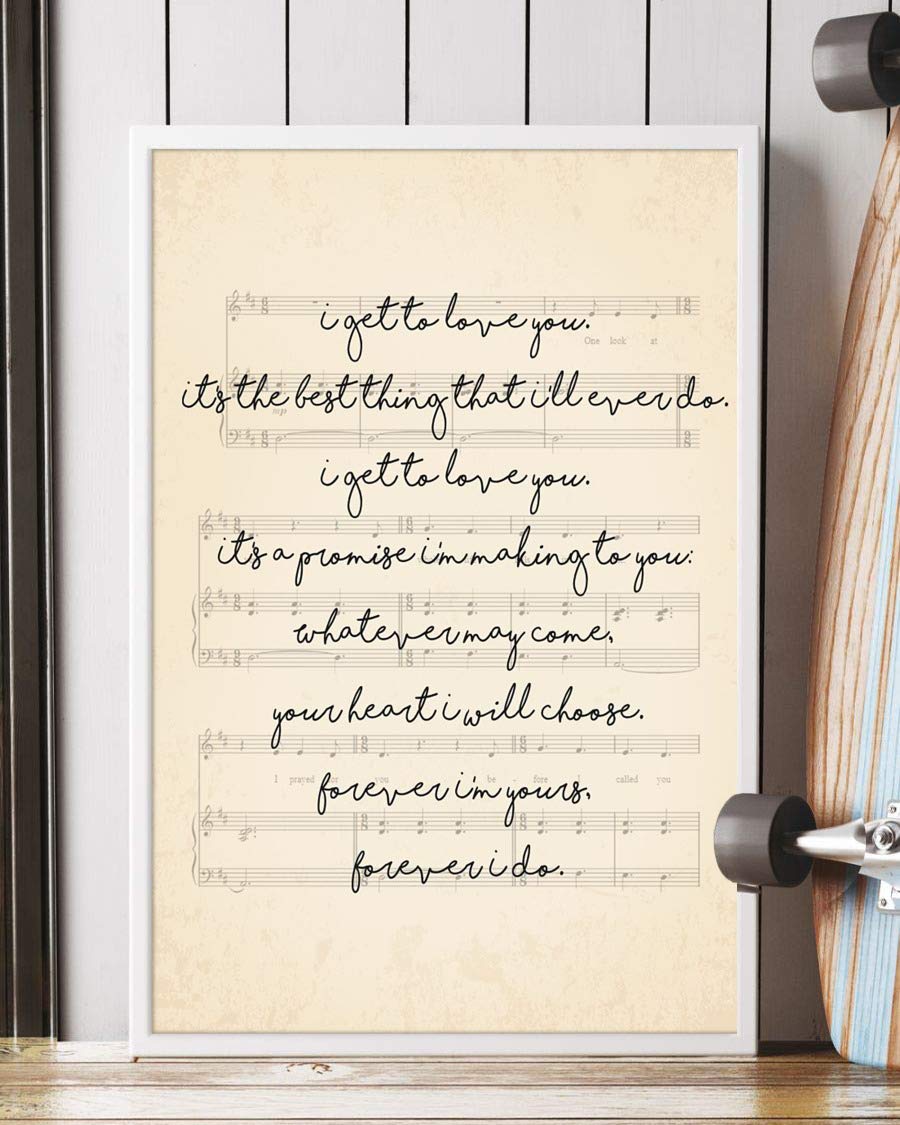 i get to love you.
One look at
it's the best thing that i'll ever do.
mp
i get to love you.
it's a promise i'm making to you:
whatever may come,
your heart i will choose.
I prayed for you be - fore I called you
forever i'm yours,
forever i do.